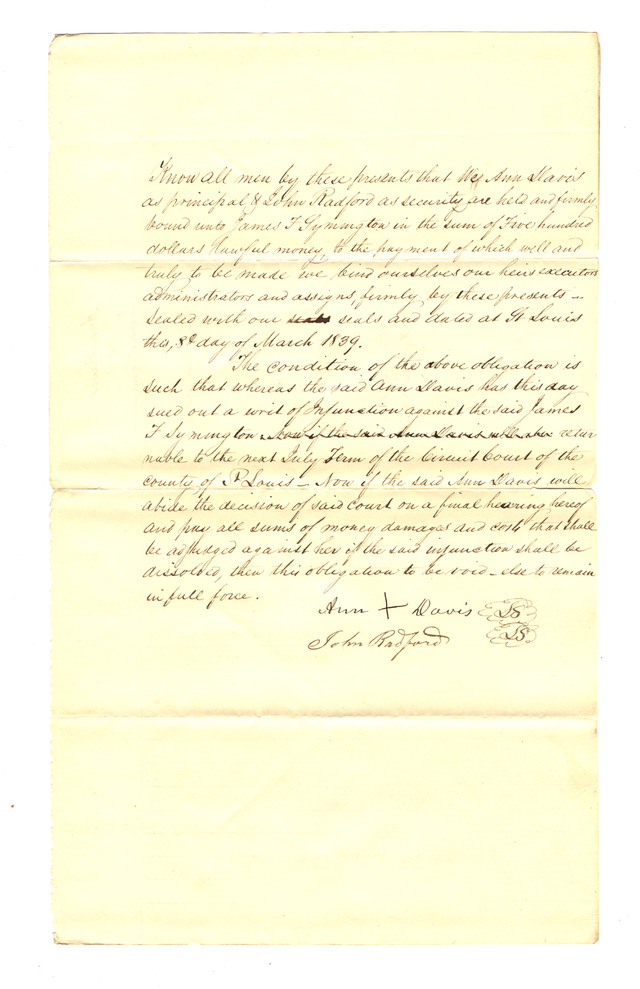 Know all men by these presents that We Ann Davis
as principal & John Radford as security are held and firmly
bound unto James T Symington in the sum of Five hundred
dollars lawful money, to the payment of which well and
truly to be made we bind ourselves our heirs executors
administrators and assigns, firmly by these presents –
Sealed with our seals seals and dated at St Louis
this, 8th day of March 1839.
The condition of the above obligation is
such that whereas the said Ann Davis has this day
sued out a writ of Injunction against the said James
T Symington. Now if the said Ann Davis will abi retur
nable to the next July Term of the Circuit Court of the
county of St Louis – Now if the said Ann Davis will
abide the decision of said court on a final hearing hereof
and pay all sums of money damages and costs that shall
be adjudged against her if the said injunction shall be
dissolved, then this obligation to be void – else to remain
in full force.
Ann + Davis LS
John Radford LS